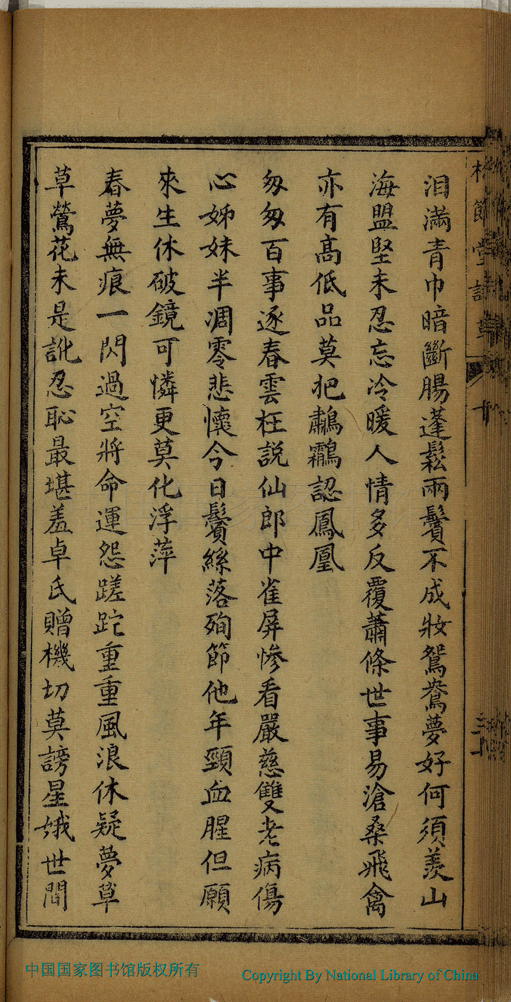 淚滿青巾暗斷腸蓬鬆兩鬢不成妝鴛鴦夢好何須羨山
海盟堅未忍忘冷暖人情多反覆蕭條世事易滄桑飛禽
亦有高低品莫把鷫鸘認鳳凰
匆匆百事逐春雲枉說仙郎中雀屏慘看嚴慈雙老病傷
心姊妹半凋零悲懷今日鬢絲落殉節他年頸血腥但願
來生休破鏡可憐更莫化浮萍
春夢無痕一閃過空將命運怨蹉跎重重風浪休疑夢草
草鶯花未是訛忍恥最堪羞卓氏贈機切莫謗星娥世間
中国国家图书馆版权所有
Copyright By National Library of China